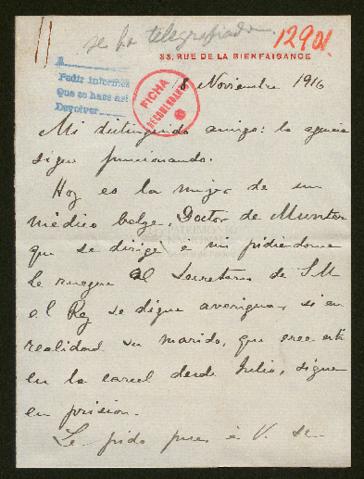 se ha telegrafiado
12901
33, RUE DE LA BIENFAISANCE
A
Pedir informes
Que se hace así
Devolver
FICHA
8 Noviembre 1916
Mi distinguido amigo: la agencia
sigue funcionando.
Hoy es la mujer de un
médico belga Doctor de Munter
que se dirige à mi pidiendome
le ruegue al Secretario de S.M
el Rey se digne averiguar, si en
realidad su marido, que cree está
en la carcel desde Julio, sigue
en prision.
Le pido pues à V. se